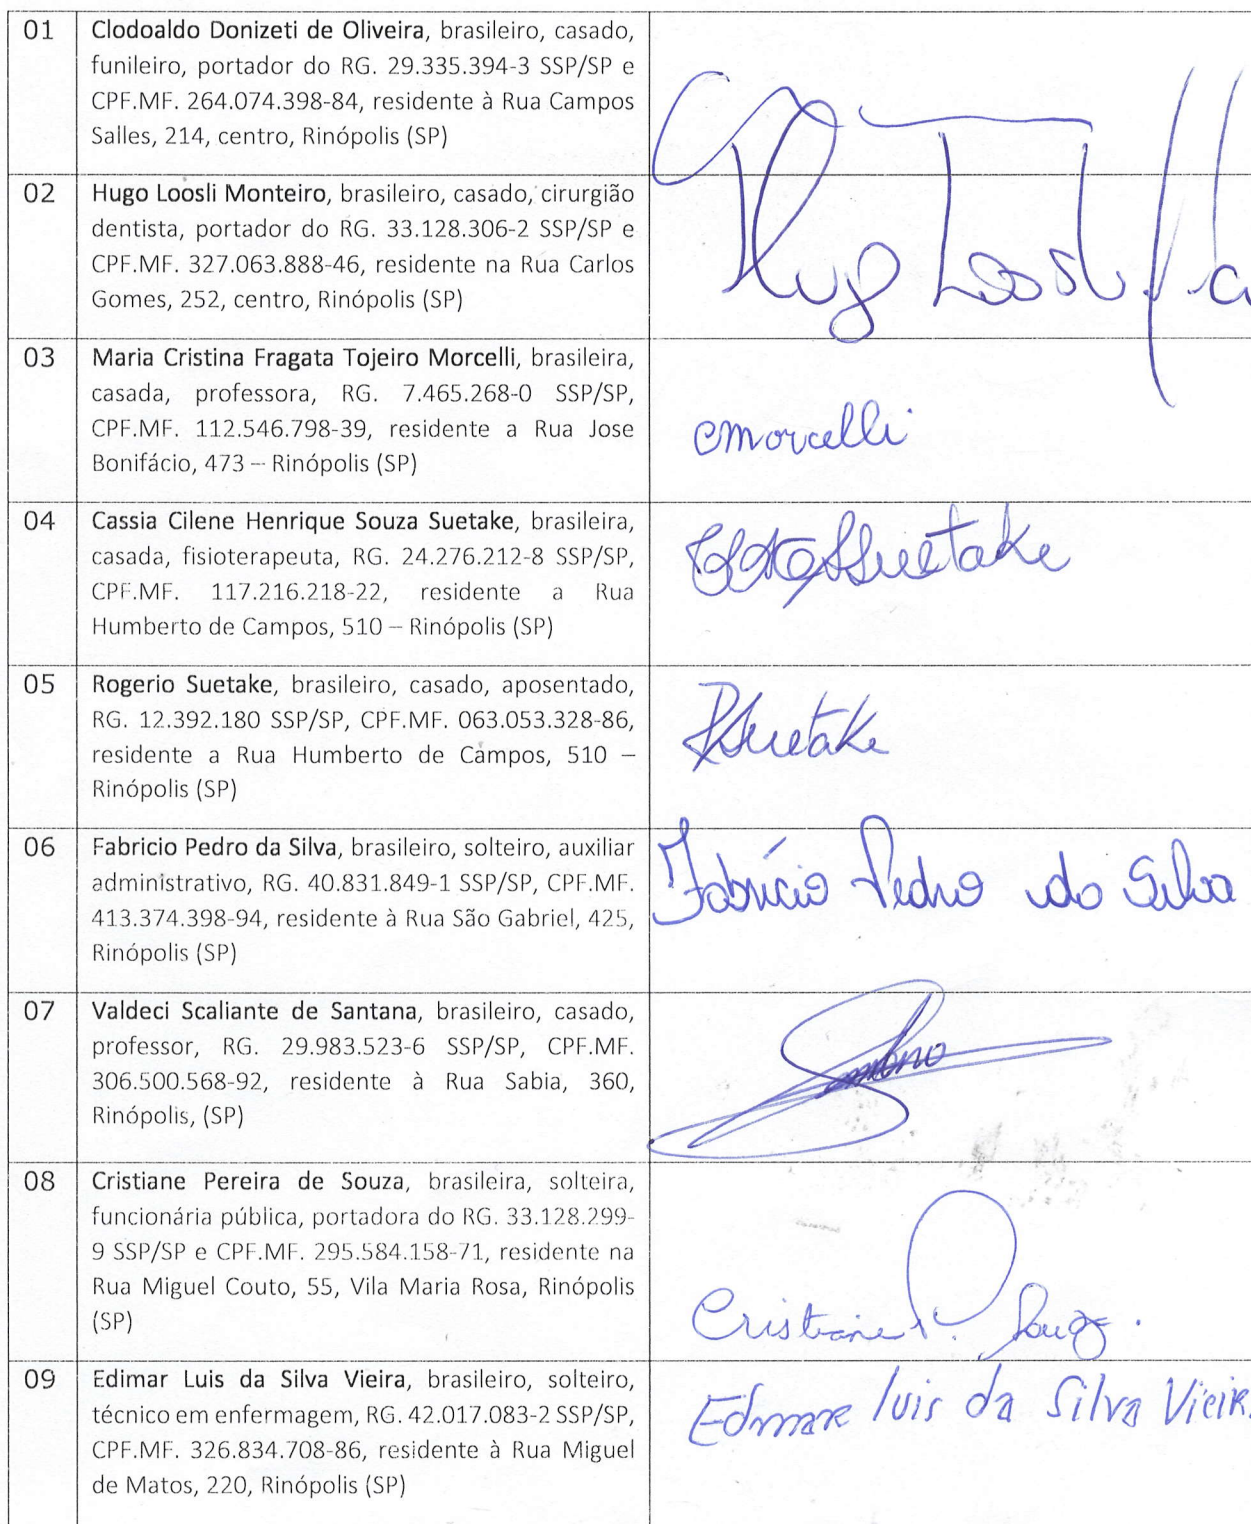 01
Clodoaldo Donizeti de Oliveira, brasileiro, casado,
funileiro, portador do RG. 29.335.394-3 SSP/SP e
CPF.MF. 264.074.398-84, residente à Rua Campos
Salles, 214, centro, Rinópolis (SP)
02
Hugo Loosli Monteiro, brasileiro, casado, cirurgião
dentista, portador do RG. 33.128.306-2 SSP/SP e
CPF.MF. 327.063.888-46, residente na Rua Carlos
Gomes, 252, centro, Rinópolis (SP)
Hugo Loosli
03
Maria Cristina Fragata Tojeiro Morcelli, brasileira,
casada, professora, RG. 7.465.268-0 SSP/SP,
CPF.MF. 112.546.798-39, residente a Rua Jose
Bonifácio, 473 – Rinópolis (SP)
cmorcelli
04
Cassia Cilene Henrique Souza Suetake, brasileira,
casada, fisioterapeuta, RG. 24.276.212-8 SSP/SP,
CPF.MF. 117.216.218-22, residente a Rua
Humberto de Campos, 510 – Rinópolis (SP)
Suetake
05
Rogerio Suetake, brasileiro, casado, aposentado,
RG. 12.392.180 SSP/SP, CPF.MF. 063.053.328-86,
residente a Rua Humberto de Campos, 510 –
Rinópolis (SP)
RSuetake
06
Fabricio Pedro da Silva, brasileiro, solteiro, auxiliar
administrativo, RG. 40.831.849-1 SSP/SP, CPF.MF.
413.374.398-94, residente à Rua São Gabriel, 425,
Rinópolis (SP)
Fabrício Pedro da Silva
07
Valdeci Scaliante de Santana, brasileiro, casado,
professor, RG. 29.983.523-6 SSP/SP, CPF.MF.
306.500.568-92, residente à Rua Sabia, 360,
Rinópolis, (SP)
08
Cristiane Pereira de Souza, brasileira, solteira,
funcionária pública, portadora do RG. 33.128.299-
9 SSP/SP e CPF.MF. 295.584.158-71, residente na
Rua Miguel Couto, 55, Vila Maria Rosa, Rinópolis
(SP)
Cristiane P. Souza.
09
Edimar Luis da Silva Vieira, brasileiro, solteiro,
técnico em enfermagem, RG. 42.017.083-2 SSP/SP,
CPF.MF. 326.834.708-86, residente à Rua Miguel
de Matos, 220, Rinópolis (SP)
Edimar luis da Silva Vieir